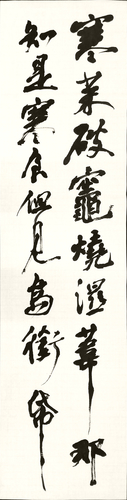 寒菜破竈燒濕葦那
知是寒食但見烏銜帋